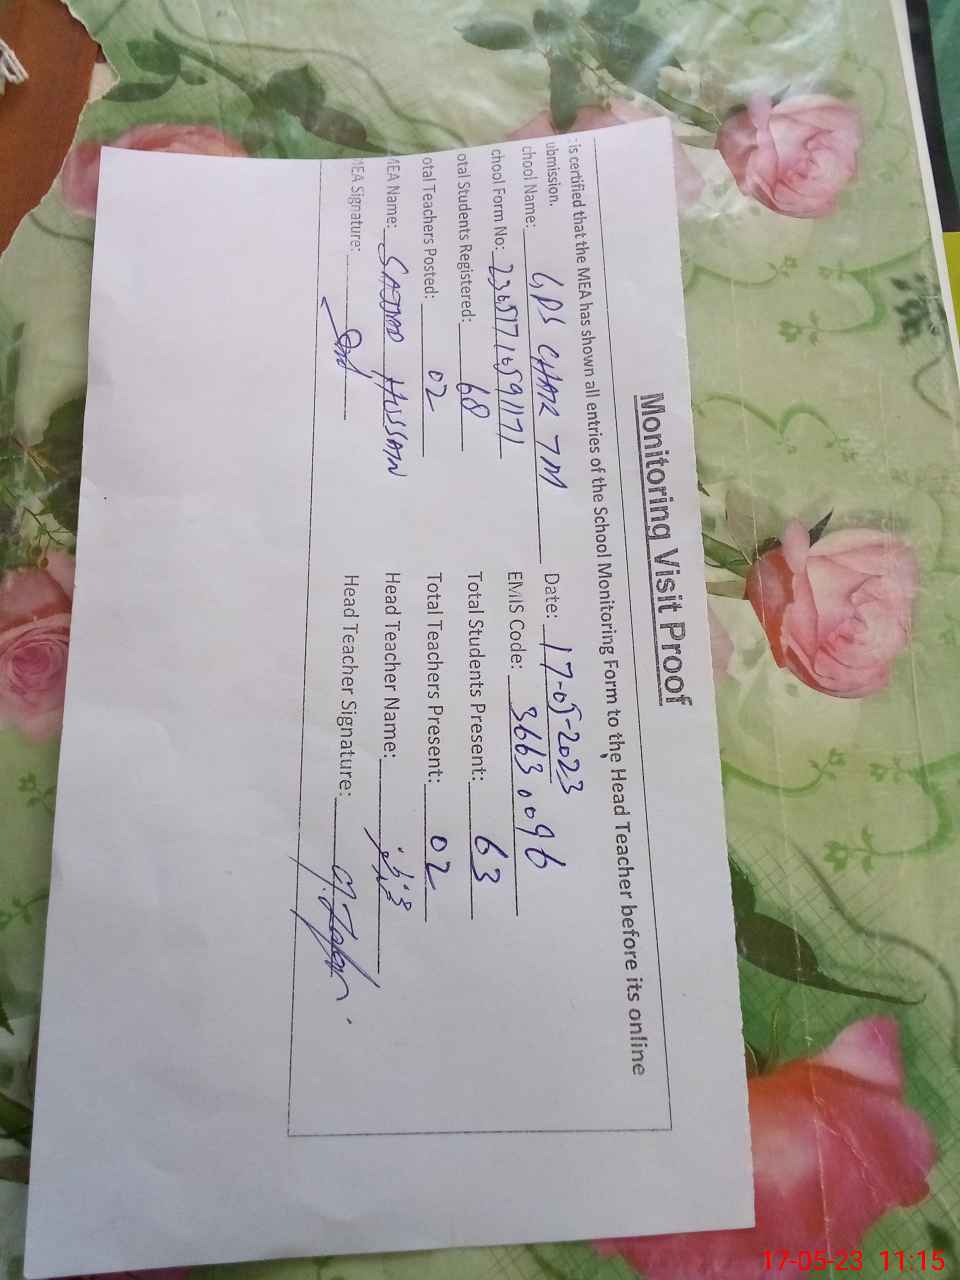 Monitoring Visit Proof
is certified that the MEA has shown all entries of the School Monitoring Form to the Head Teacher before its online
ubmission.
chool Name: GPS CHAK 7M Date: 17-05-2023
chool Form No: EMIS Code: 36630096
otal Students Registered: 68 Total Students Present: 63
otal Teachers Posted: 02 Total Teachers Present: 02
MEA Name: SAJJAD HUSSAIN Head Teacher Name:
MEA Signature: Head Teacher Signature:
17-05-23 11:15